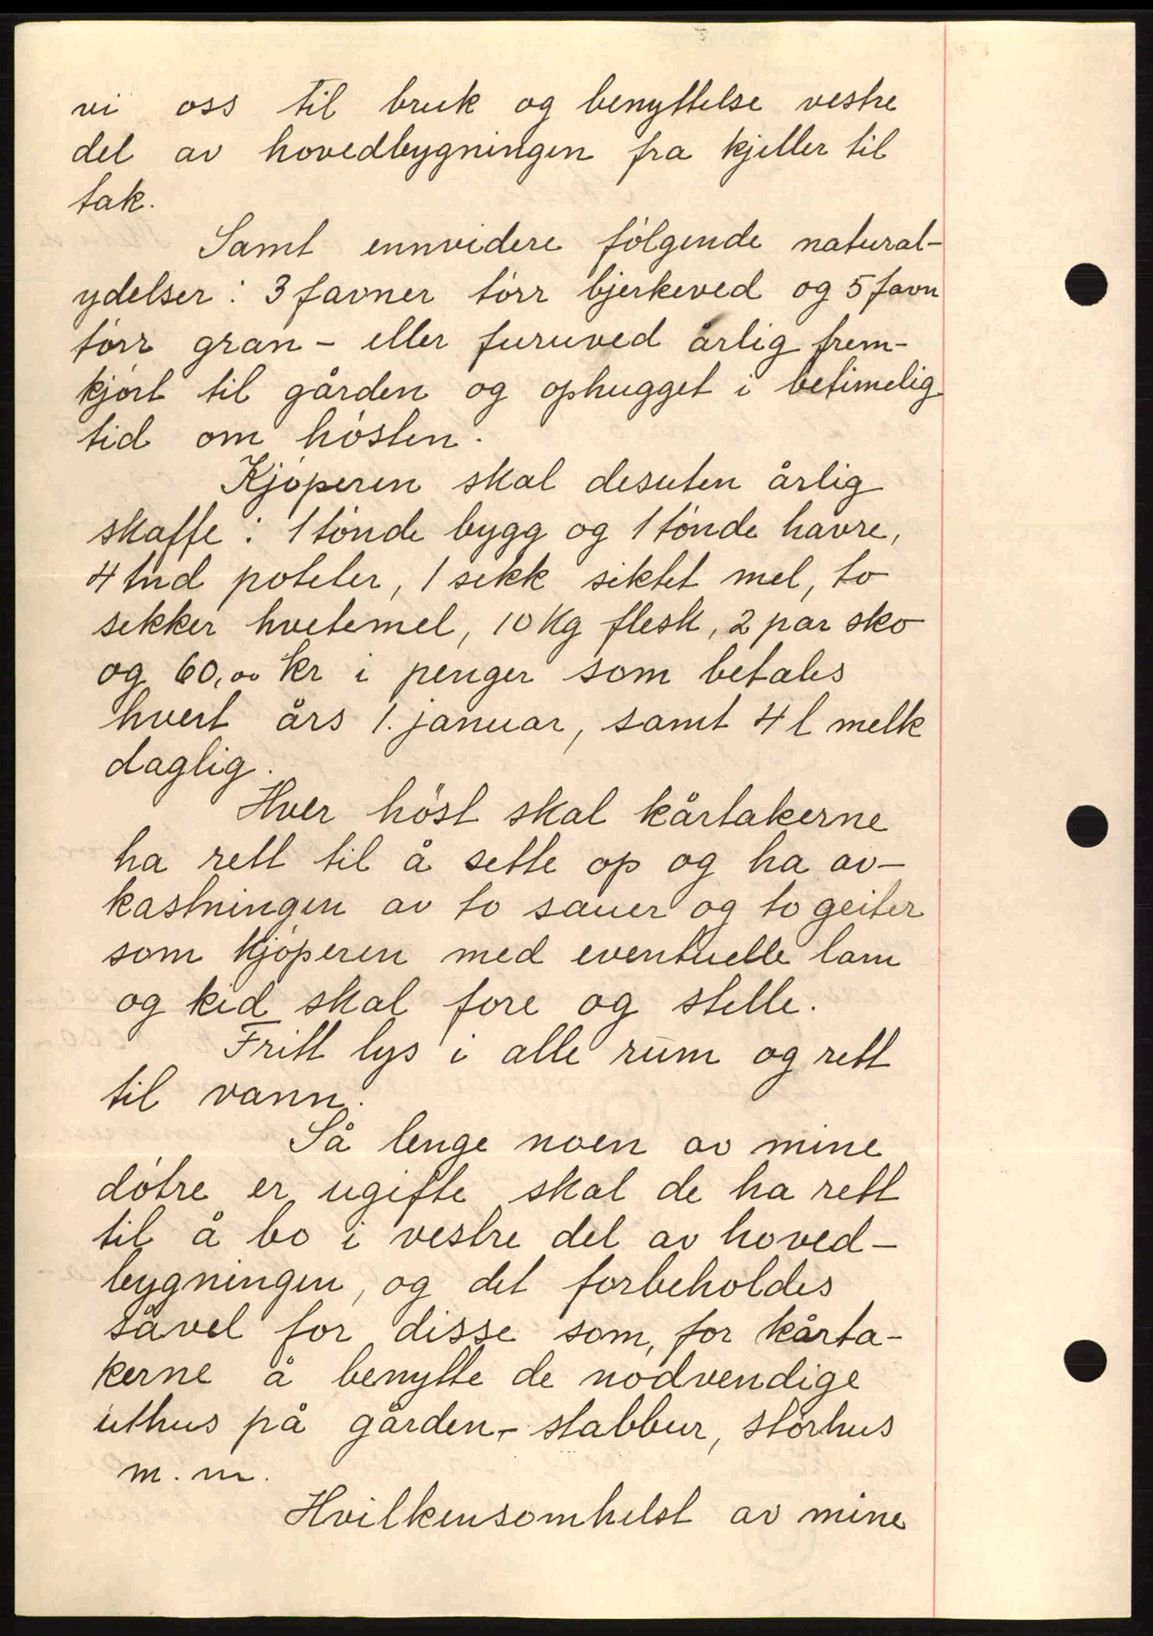 vi oss til bruk og benyttelse vestre
del av hovedbygningen fra kjeller til
tak.
Samt ennvidere følgende natural-
ydelser: 3 favner tørr bjerkeved og 5 favn
tørr gran - eller furuved årlig frem-
kjørt til gården og ophugget i betimelig
tid om høsten.
Kjøperen skal desuten årlig
skaffe: 1 tønde bygg og 1 tønde havre,
4 tnd poteter, 1 sekk siktet mel, to
sekker hvetemel, 10 kg flesk, 2 par sko
og 60,00 kr i penger som betales
hvert års 1. januar, samt 4 l melk
daglig.
Hver høst skal kårtakerne
ha rett til å sette op og ha av-
kastningen av to sauer og to geiter
som kjøperen med eventuelle lam
og kid skal fore og stelle.
Fritt lys i alle rum og rett
til vann.
Så lenge noen av mine
døtre er ugifte skal de ha rett
til å bo i vestre del av hoved-
bygningen, og det forbeholdes
såvel for disse som, for kårta-
kerne å benytte de nødvendige
uthus på gården, - stabbur, størhus
m. m.
Hvilkensomhelst av mine